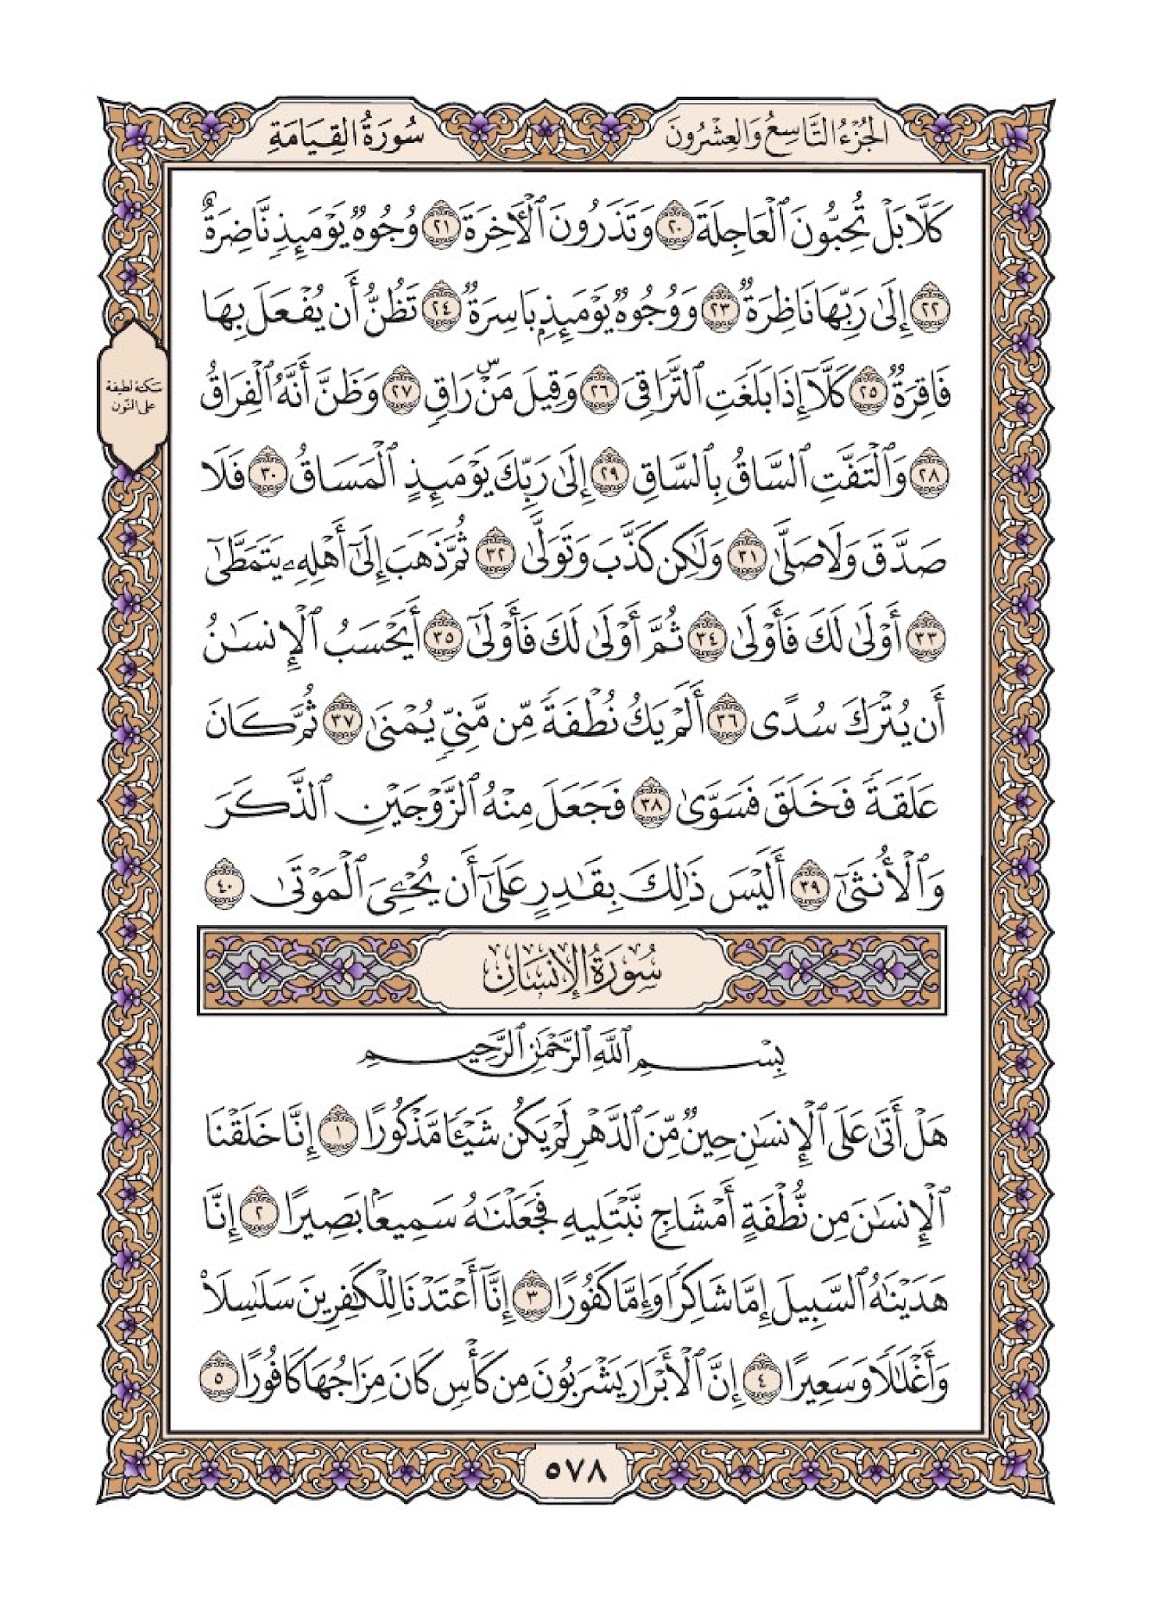 الجُزْءُ التَّاسِعُ وَالعِشْرُونَ
سُورَةُ القِيَامَةِ
كَلَّا بَلْ تُحِبُّونَ ٱلْعَاجِلَةَ ٢٠ وَتَذَرُونَ ٱلْأٓخِرَةَ ٢١ وُجُوهٌ يَوْمَئِذٍ نَّاضِرَةٌ
٢٢ إِلَىٰ رَبِّهَا نَاظِرَةٌ ٢٣ وَوُجُوهٌ يَوْمَئِذٍۭ بَاسِرَةٌ ٢٤ تَظُنُّ أَن يُفْعَلَ بِهَا
فَاقِرَةٌ ٢٥ كَلَّآ إِذَا بَلَغَتِ ٱلتَّرَاقِىَ ٢٦ وَقِيلَ مَنْۜ رَاقٍ ٢٧ وَظَنَّ أَنَّهُ ٱلْفِرَاقُ
سكتة لطيفة
على النّون
٢٨ وَٱلْتَفَّتِ ٱلسَّاقُ بِٱلسَّاقِ ٢٩ إِلَىٰ رَبِّكَ يَوْمَئِذٍ ٱلْمَسَاقُ ٣٠ فَلَا
صَدَّقَ وَلَا صَلَّىٰ ٣١ وَلَٰكِن كَذَّبَ وَتَوَلَّىٰ ٣٢ ثُمَّ ذَهَبَ إِلَىٰٓ أَهْلِهِۦ يَتَمَطَّىٰٓ
٣٣ أَوْلَىٰ لَكَ فَأَوْلَىٰ ٣٤ ثُمَّ أَوْلَىٰ لَكَ فَأَوْلَىٰٓ ٣٥ أَيَحْسَبُ ٱلْإِنسَٰنُ
أَن يُتْرَكَ سُدًى ٣٦ أَلَمْ يَكُ نُطْفَةً مِّن مَّنِىٍّ يُمْنَىٰ ٣٧ ثُمَّ كَانَ
عَلَقَةً فَخَلَقَ فَسَوَّىٰ ٣٨ فَجَعَلَ مِنْهُ ٱلزَّوْجَيْنِ ٱلذَّكَرَ
وَٱلْأُنثَىٰٓ ٣٩ أَلَيْسَ ذَٰلِكَ بِقَٰدِرٍ عَلَىٰٓ أَن يُحْۦِىَ ٱلْمَوْتَىٰ ٤٠
سُورَةُ الإِنسَانِ
بِسْمِ ٱللَّهِ ٱلرَّحْمَٰنِ ٱلرَّحِيمِ
هَلْ أَتَىٰ عَلَى ٱلْإِنسَٰنِ حِينٌ مِّنَ ٱلدَّهْرِ لَمْ يَكُن شَيْـًٔا مَّذْكُورًا ١ إِنَّا خَلَقْنَا
ٱلْإِنسَٰنَ مِن نُّطْفَةٍ أَمْشَاجٍ نَّبْتَلِيهِ فَجَعَلْنَٰهُ سَمِيعًۢا بَصِيرًا ٢ إِنَّا
هَدَيْنَٰهُ ٱلسَّبِيلَ إِمَّا شَاكِرًا وَإِمَّا كَفُورًا ٣ إِنَّآ أَعْتَدْنَا لِلْكَٰفِرِينَ سَلَٰسِلَا۟
وَأَغْلَٰلًا وَسَعِيرًا ٤ إِنَّ ٱلْأَبْرَارَ يَشْرَبُونَ مِن كَأْسٍ كَانَ مِزَاجُهَا كَافُورًا ٥
٥٧٨